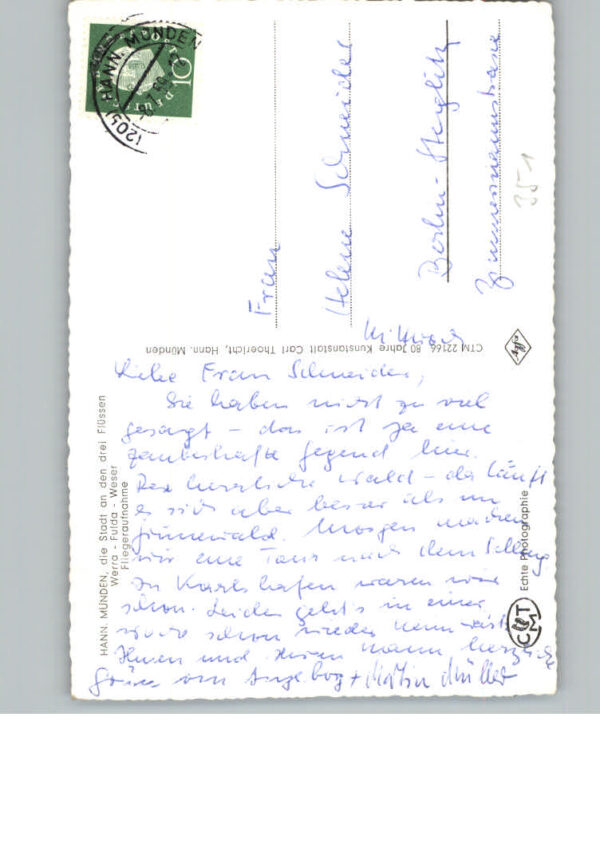 (20b) HANN. MÜNDEN
10
Frau
Helene Schneider
Berlin-Steglitz
Zimmermannstrasse
35 1
CTM 22166 80 Jahre Kunstanstalt Carl Thoericht, Hann. Münden
HANN. MÜNDEN, die Stadt an den drei Flüssen
Werra - Fulda - Weser
Fliegeraufnahme
Echte Photographie
CTM
Liebe Frau Schneider,
Sie haben nicht zu viel
gesagt – das ist ja eine
zauberhafte Gegend hier.
Der herrliche Wald – da läuft
es sich aber besser als im
Grunewald. Morgen machen
wir eine Tour nach dem Solling
In Karlshafen waren wir
schon. Leider geht's in einer
Woche schon wieder heimwärts
Ihnen und Ihrem Mann herzliche
Grüße von Ingeborg + Martin Müller